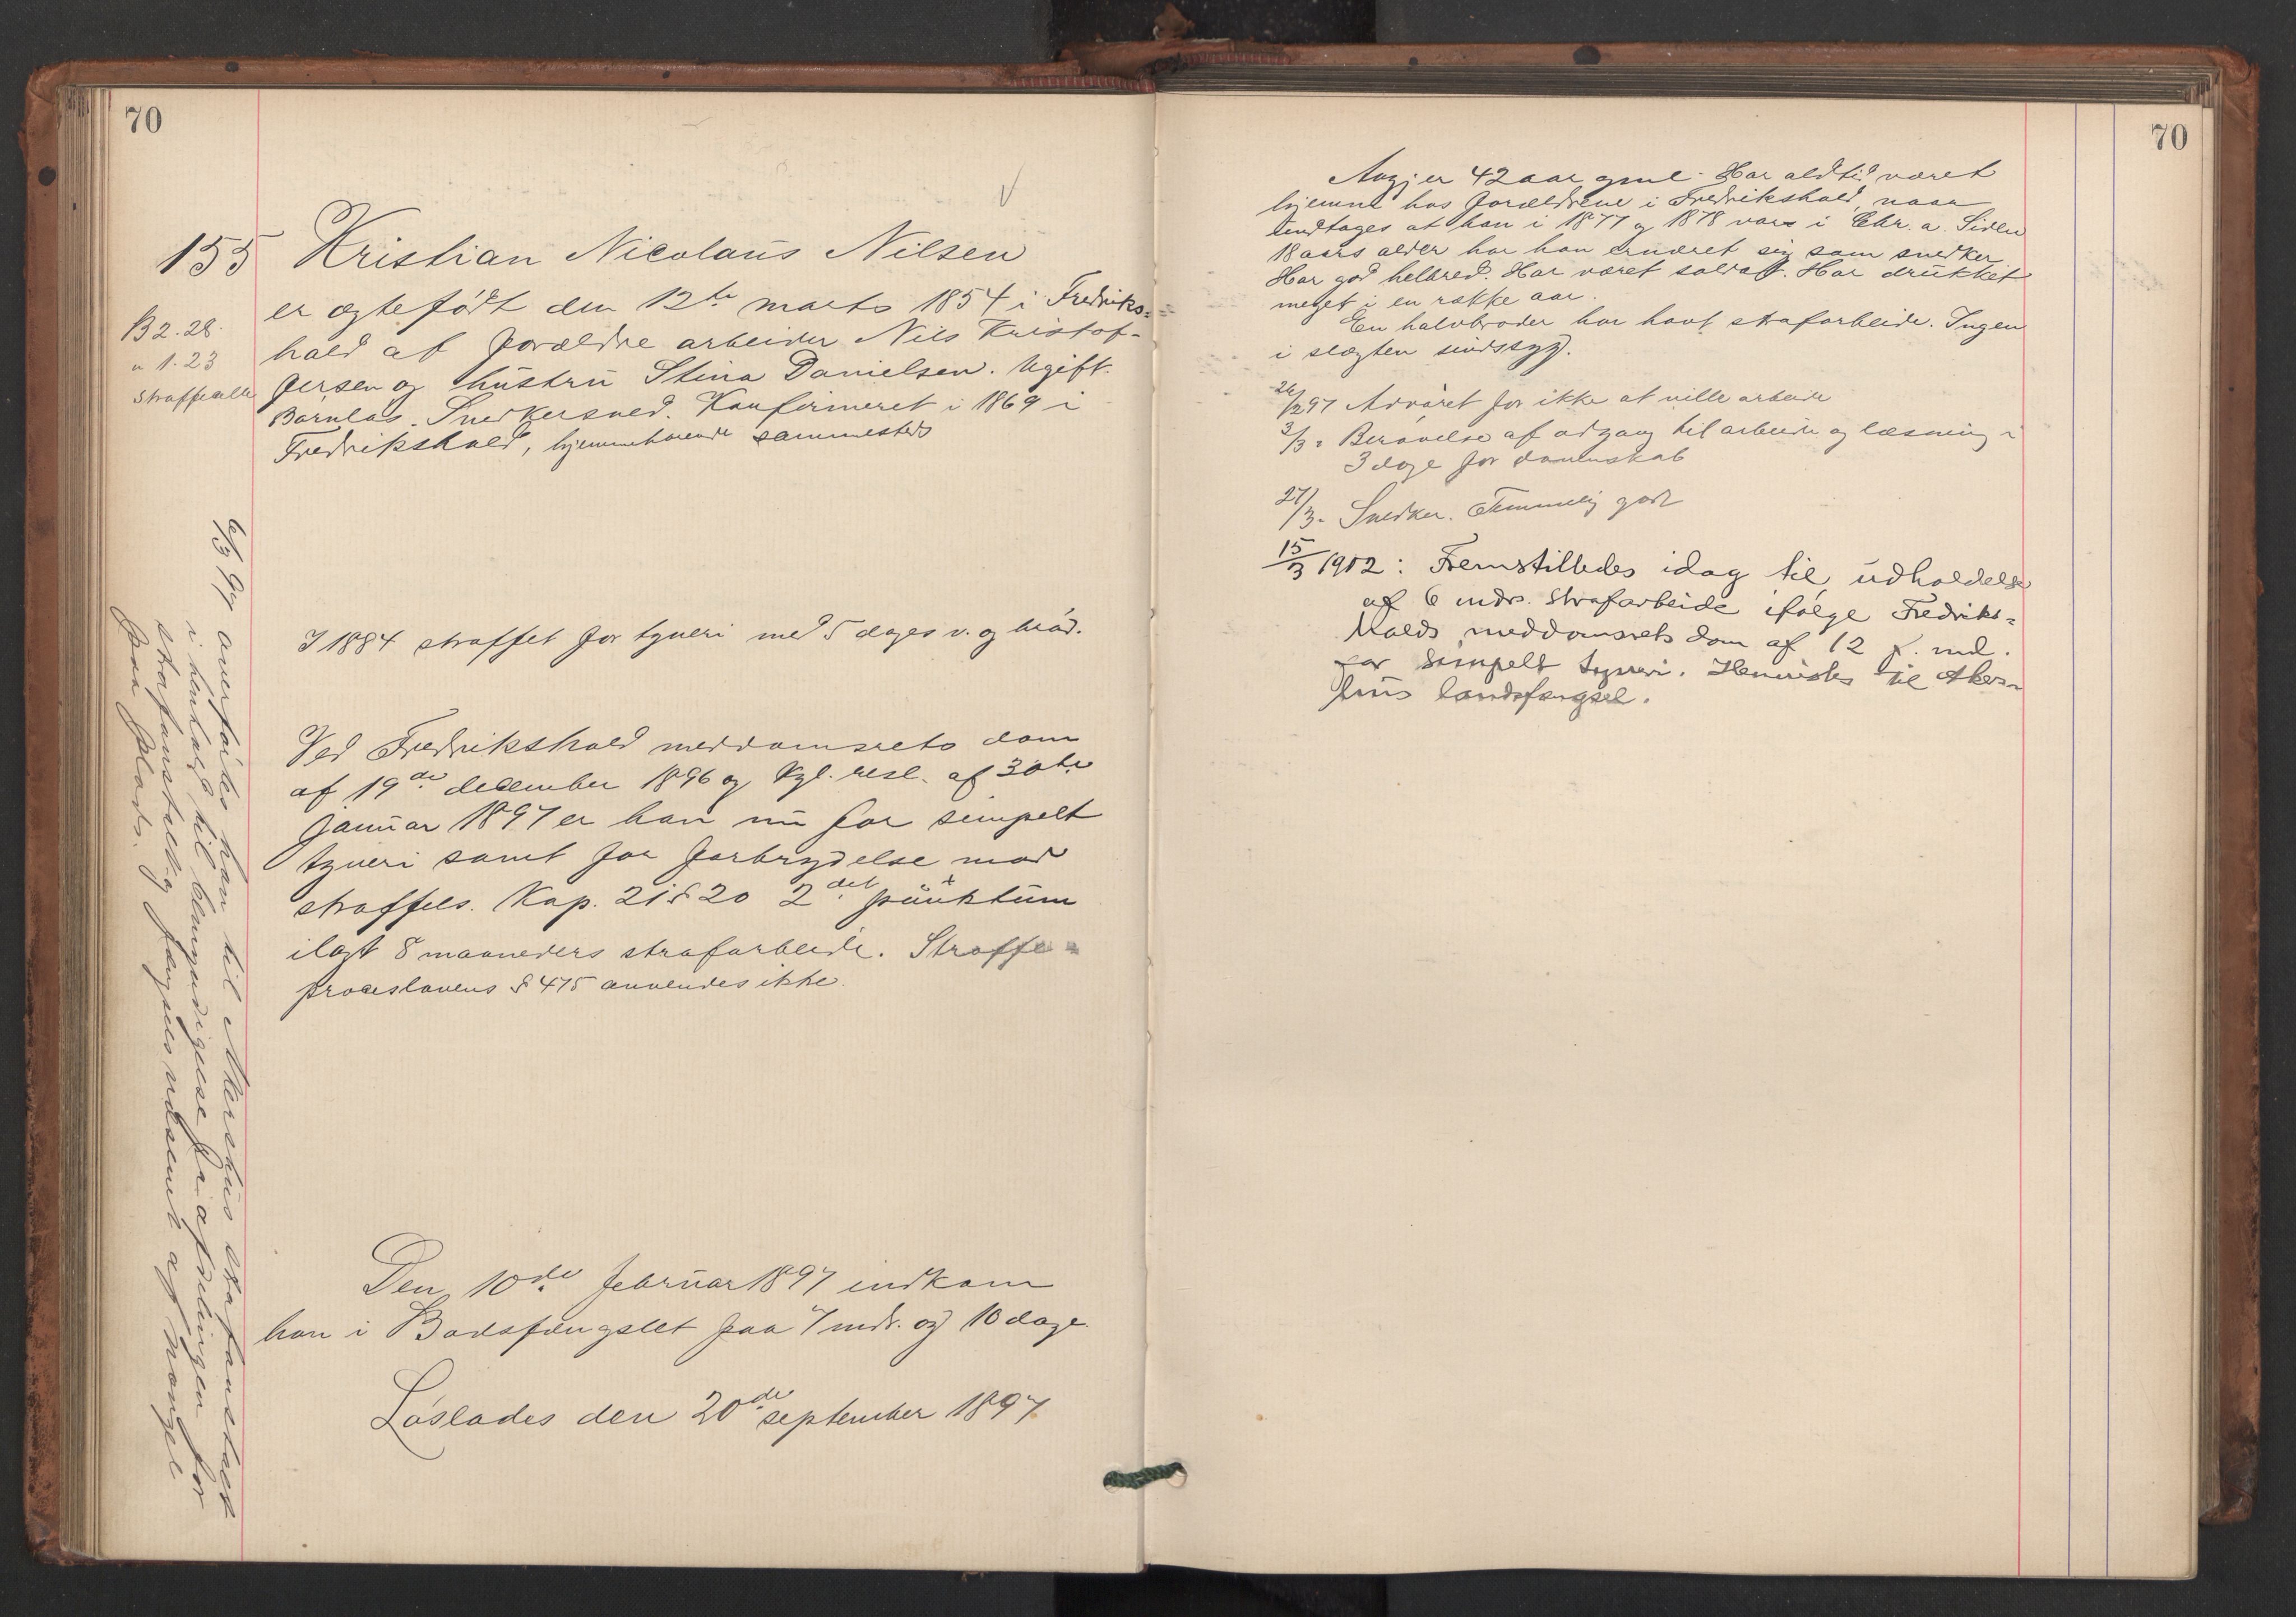 70
155 Kristian Nicolaus Nilsen
er ægtefødt den 12te marts 1854 i Fredriks=
hald af forældre arbeider Nils Kristof-
fersen og hustru Stina Danielsen. Ugift.
Barnløs. Snedkersved. Konfirmeret i 1869 i
Fredrikshald, hjemmehørende sammesteds
B 2.28.
" 1.23
I 1884 straffet for tyveri med 5 dages v. og brød.
Ved Fredrikshald meddomsrets dom
af 19de december 1896 og Kgl. resl. af 30te
januar 1897 er han nu for simpelt
tyveri samt for forbrydelse mod
straffels. Kap. 21 § 20 2det punktum
ilagt 8 maaneders strafarbeide. Straffe=
proceslovens § 475 anvendes ikke.
Den 10de februar 1897 indkom
han i Bodsfængslet paa 7 mdr. og 10 dage.
Løslades den 20de september 1897
6/3 97 overføres han til Akershus strafanstalt
i henhold til bemyndigelse fra afdelingen for
strafanstalt og fængselsvæsenet af mangel
paa plads.
70
Angj. er 42 aar gml. Har altid været
hjemme hos forældrene i Fredrikshald, naar
undtages at han i 1877 og 1878 var i Chr.a. Siden
18 aars alder har han ernæret sig som snedker
Har god helbred. Har været soldat. Har drukket
meget i en række aar.
En halvbroder har havt strafarbeide. Ingen
i slægten sindssyg.
26/2 97 Advaret for ikke at ville arbeide
3/3 " Berøvelse af adgang til arbeide og læsning i
3 dage for dovenskab
27/3 " Snedker. Temmelig godt
15/3 1902: Fremstilledes idag til udholdelse
af 6 mdr. strafarbeide ifølge Fredriks=
halds meddomsrets dom af 12 f. md.
for simpelt tyveri. Henvistes til Akers=
hus landsfængsel.